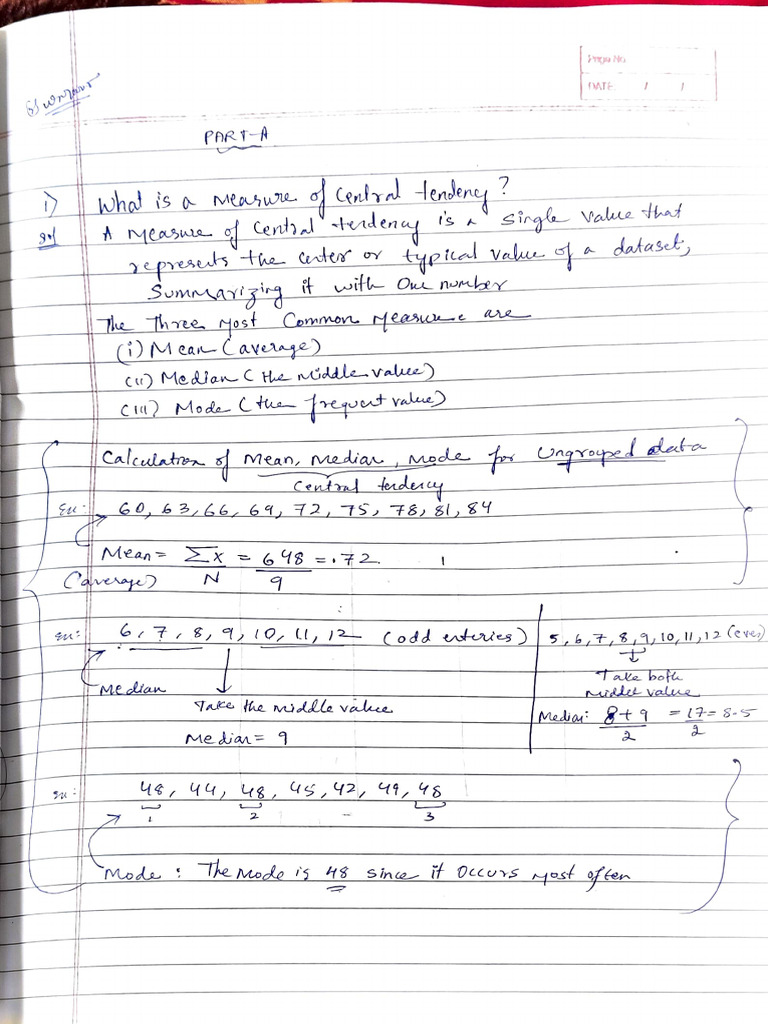 Page No.
DATE / /
PART-A
1) What is a Measure of Central tendency?
Sol A Measure of Central tendency is a single value that
represents the center or typical value of a dataset,
Summarizing it with One number
The Three Most Common Measure are
(i) Mean (average)
(ii) Median (the Middle value)
(iii) Mode (the frequent value)
Calculation of Mean, Median, Mode for Ungrouped data
Central tendency
Ex: 60, 63, 66, 69, 72, 75, 78, 81, 84
Mean = Σx/N = 648/9 = .72
(average)
Ex: 6, 7, 8, 9, 10, 11, 12 (odd enteries)
Median
Take the middle value
Median = 9
5, 6, 7, 8, 9, 10, 11, 12 (even)
Take both
middel value
Median: 8+9/2 = 17/2 = 8.5
Ex: 48, 44, 48, 45, 42, 49, 48
1 2 3
Mode : The Mode is 48 since it occurs most often